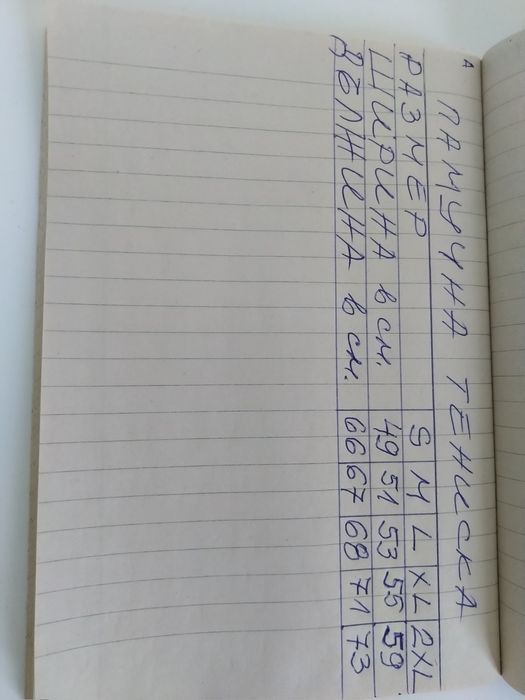 A
ПАМУЧНА ТЕНИСКА
РАЗМЕР S M L XL 2XL
ШИРИНА в см. 49 51 53 55 59
ДЪЛЖИНА в см. 66 67 68 71 73